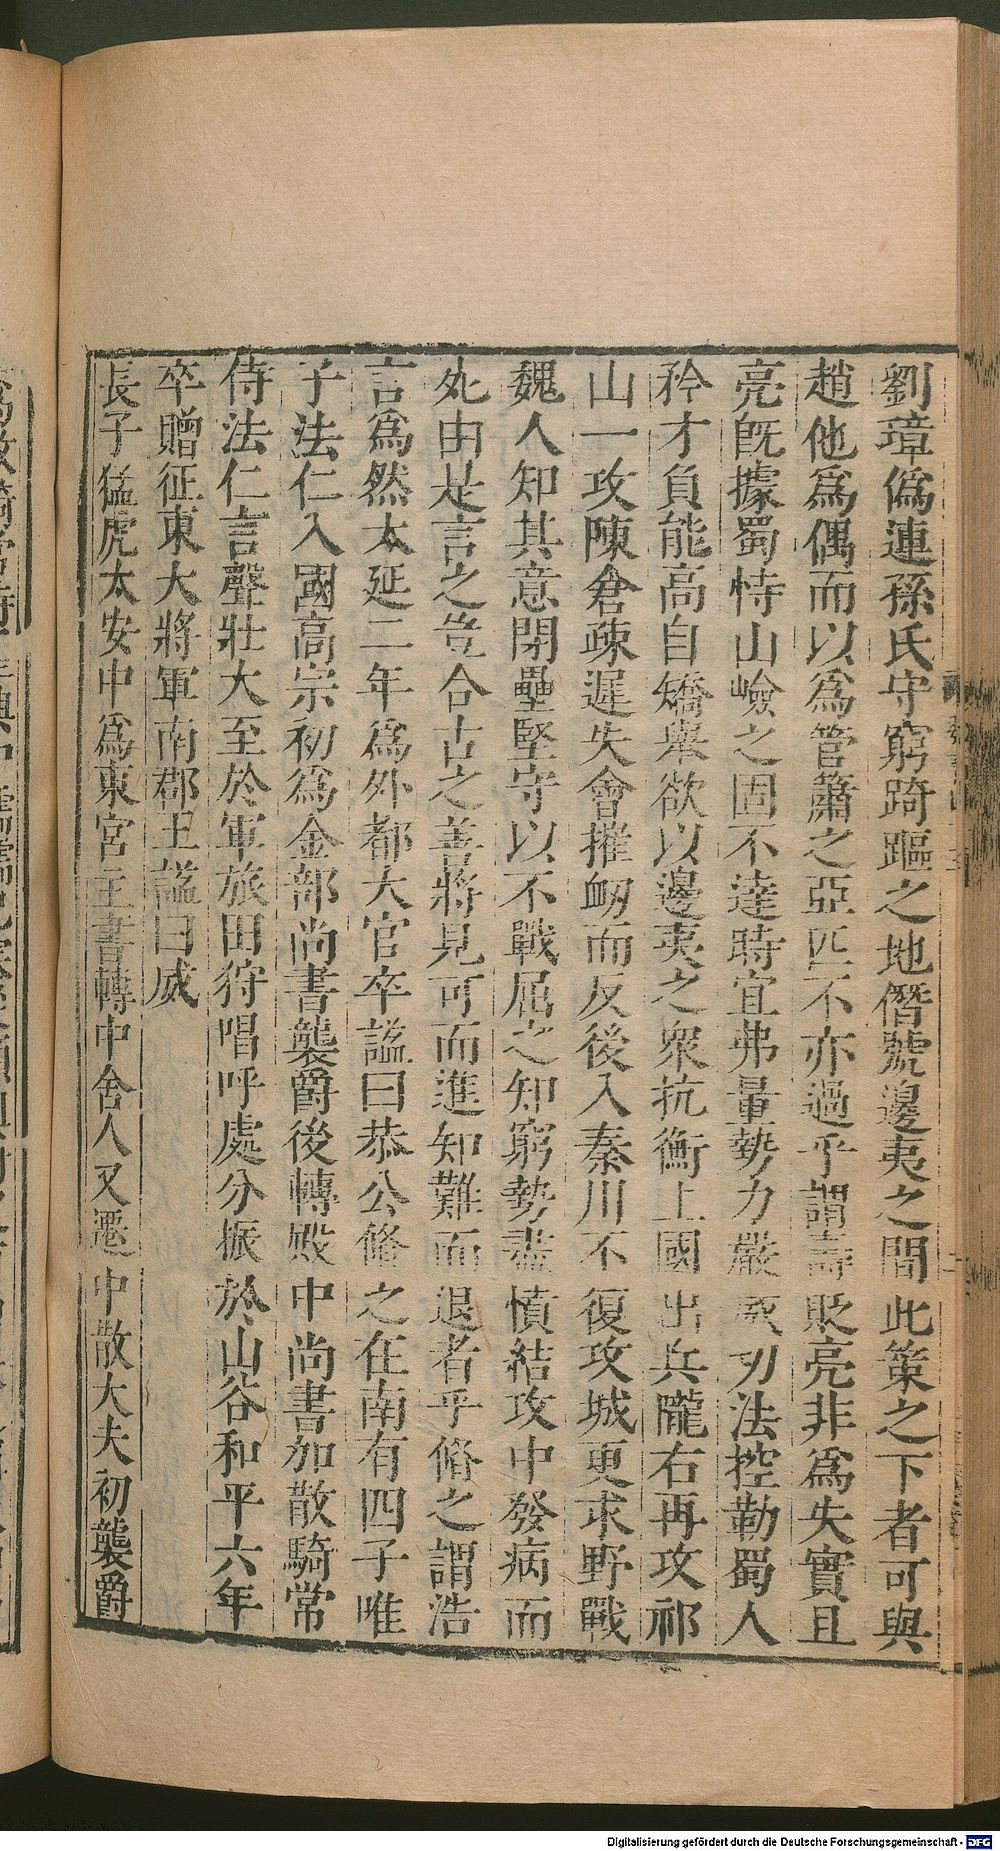 劉璋偽連孫氏守窮踦䟽之地僭號邊夷之間此策之下者可與
趙他爲偶而以爲管蕭之亞匹不亦過乎謂壽貶亮非爲失實且
亮旣據蜀恃山嶮之固不達時宜弗量勢力嚴威切法控勒蜀人
矜才負能高自矯舉欲以邊夷之衆抗衡上國出兵隴右再攻祁
山一攻陳倉疎遲失會摧衂而反後入秦川不復攻城更求野戰
魏人知其意閉壘堅守以不戰屈之知窮勢盡憤結攻中發病而
死由是言之豈合古之善將見可而進知難而退者乎脩之謂浩
言爲然太延二年爲外都大官卒謚曰恭公脩之在南有四子唯
子法仁入國高宗初爲金部尚書襲爵後轉殿中尚書加散騎常
侍法仁言聲壯大至於軍旅田狩唱呼處分振於山谷和平六年
卒贈征東大將軍南郡王謚曰威
長子猛虎太安中爲東宮主書轉中舍人又遷中散大夫初襲爵
Digitalisierung gefördert durch die Deutsche Forschungsgemeinschaft - DFG